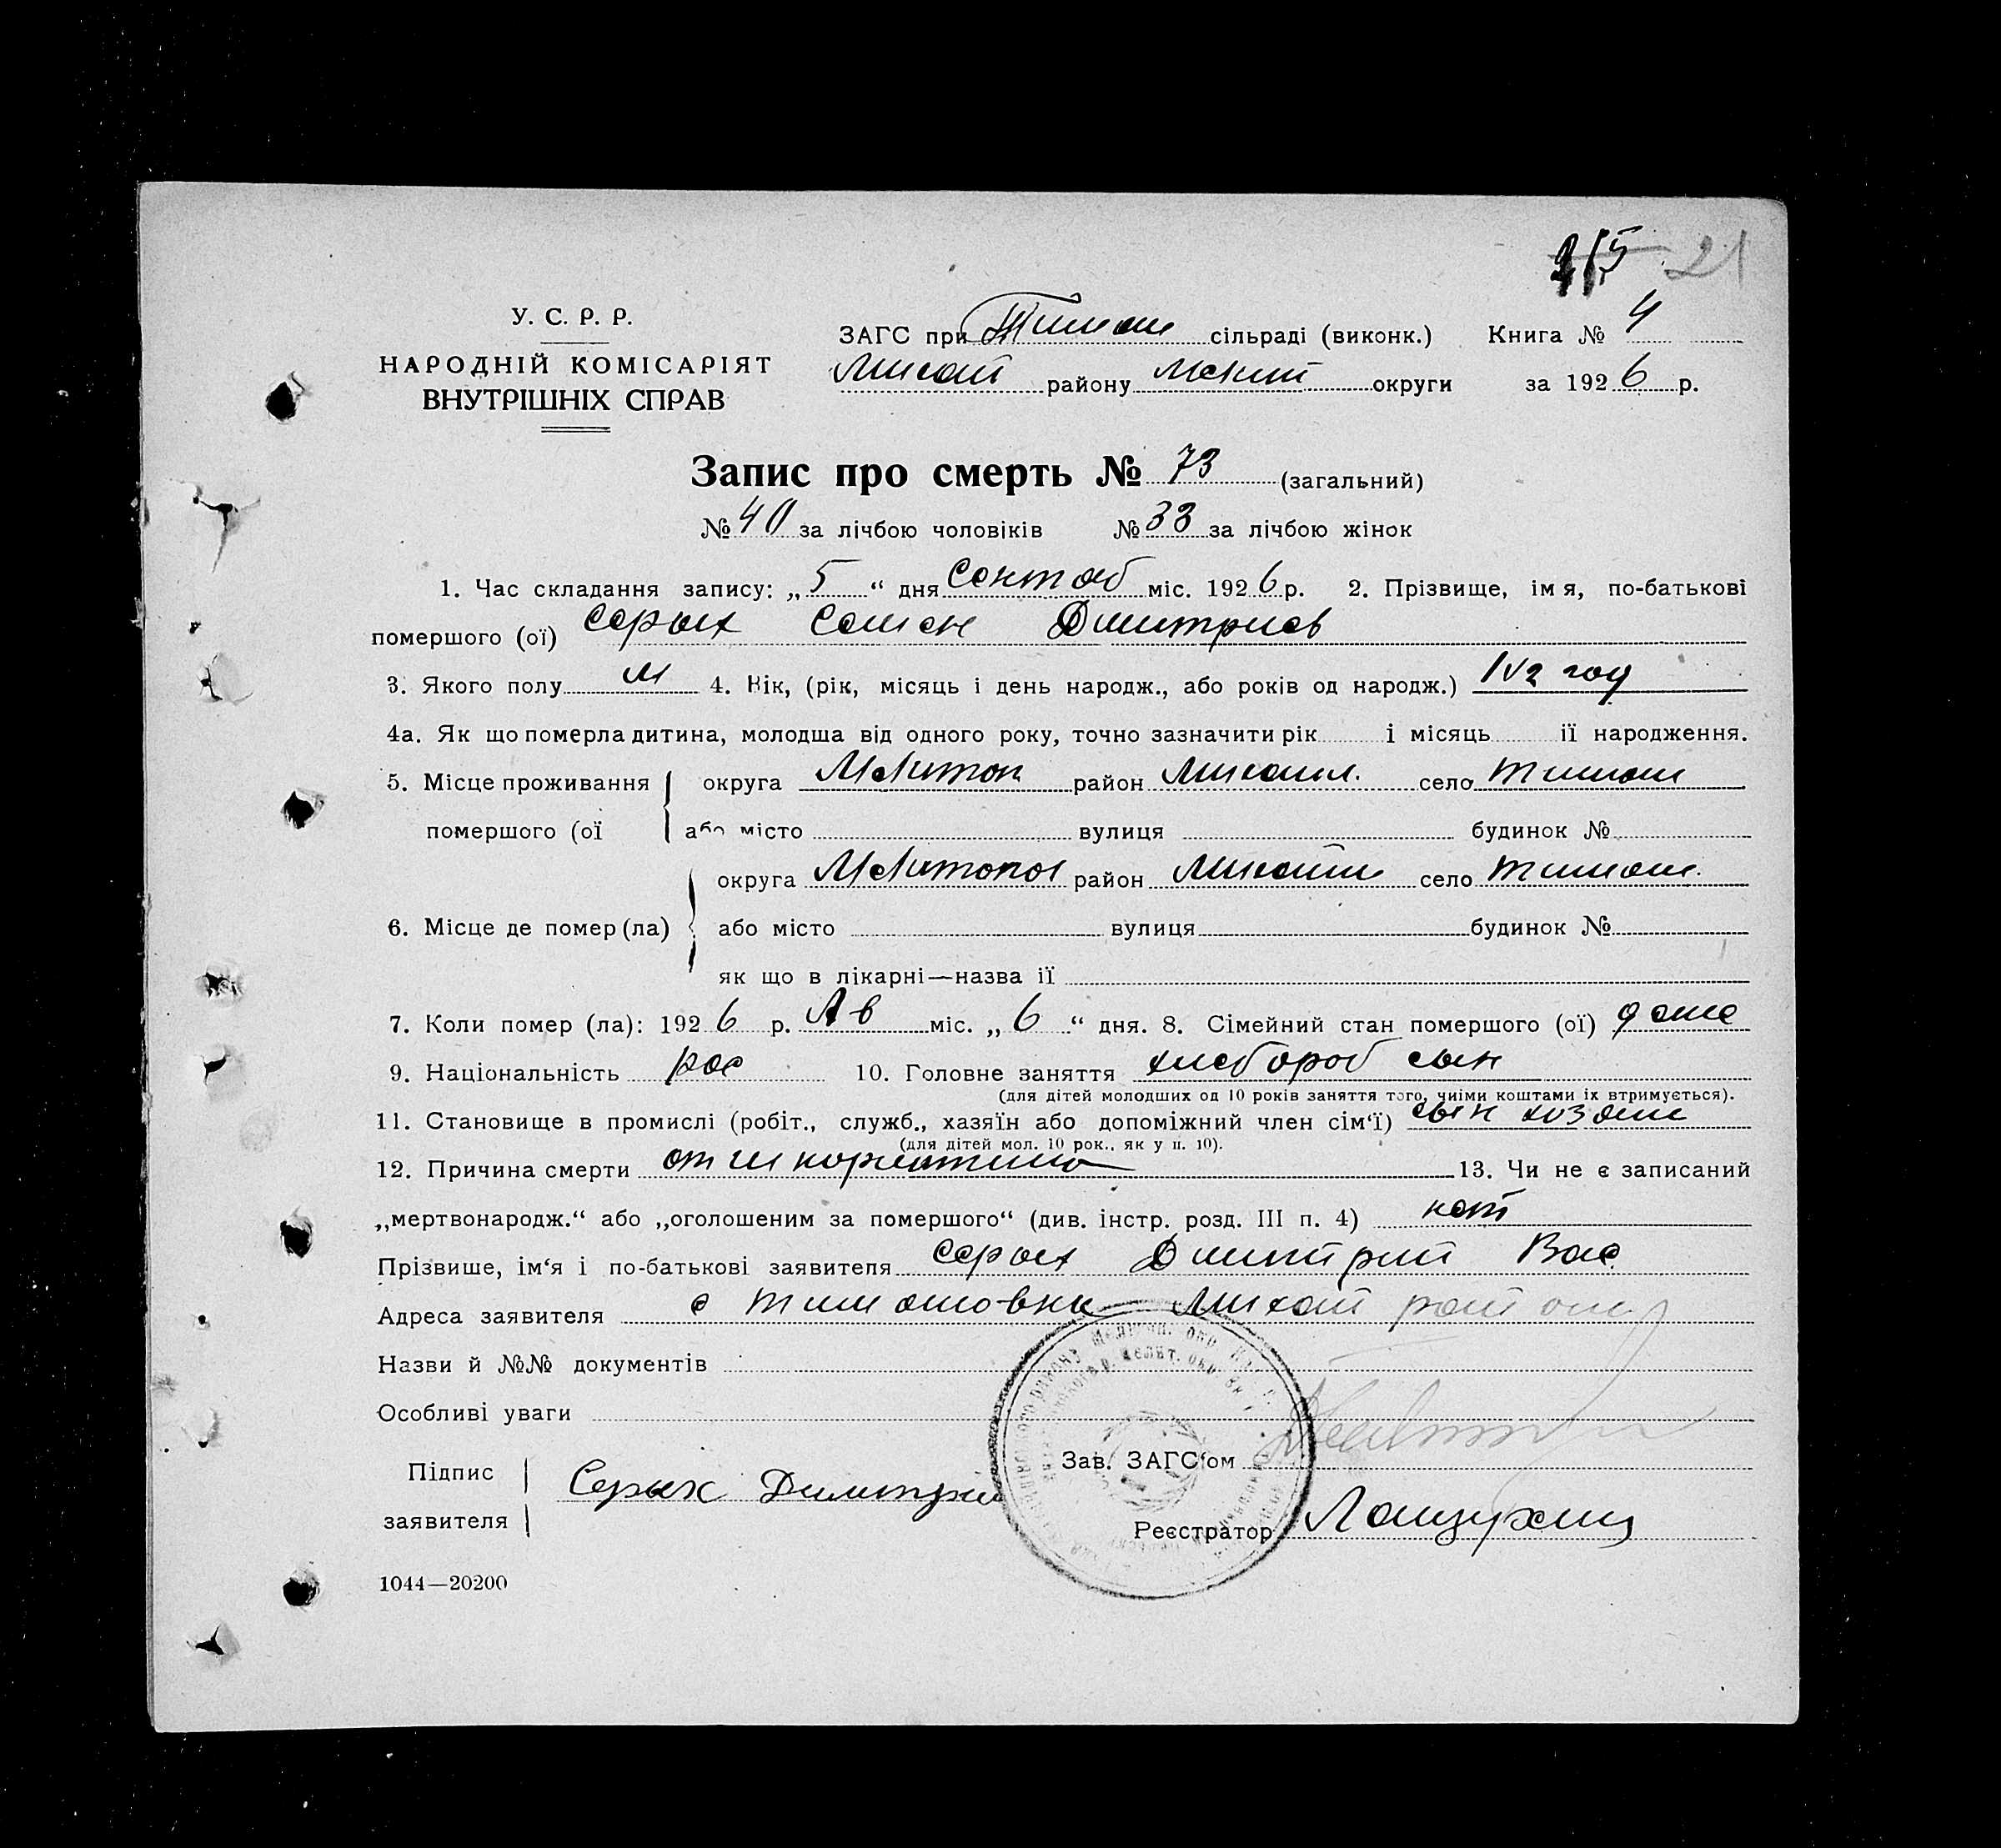 215 21
У. С. Р. Р.
НАРОДНІЙ КОМІСАРІЯТ
ВНУТРІШНІХ СПРАВ
ЗАГС при Тимош сільраді (виконк.) Книга № 4
Михай району Мелит округи за 1926 р.
Запис про смерть № 73 (загальний)
№ 40 за лічбою чоловіків № 33 за лічбою жінок
1. Час складання запису: „5“ дня Сентяб міс. 1926 р. 2. Прізвище, імя, по-батькові
помершого (ої) Серых Семен Дмитриев
3. Якого полу м 4. Вік, (рік, місяць і день народж., або років од народж.) 1 1/2 год
4а. Як що померла дитина, молодша від одного року, точно зазначити рік і місяць її народження.
5. Місце проживання округа Мелитоп район Михайл. село Тимош
помершого (ої або місто вулиця будинок №
округа Мелитопол район Михайл село Тимош.
6. Місце де помер (ла) або місто вулиця будинок №
як що в лікарні—назва її
7. Коли помер (ла): 1926 р. Ав міс. „6“ дня. 8. Сімейний стан помершого (ої)
9. Національність рос 10. Головне заняття хлебороб сын
(для дітей молодших од 10 років заняття того, чиїми коштами їх втримується).
11. Становище в промислі (робіт., служб., хазяїн або допоміжний член сім‘ї) сын хозяин
(для дітей мол. 10 рок., як у п. 10).
12. Причина смерти от 13. Чи не є записаний
„мертвонародж.“ або „оголошеним за помершого“ (див. інстр. розд. III п. 4) нет
Прізвише, ім‘я і по-батькові заявителя Серых Дмитрий Вас
Адреса заявителя с Тимошовки Михай район
Назви й №№ документів
Особливі уваги
Зав. ЗАГС‘ом
Підпис
заявителя Серых Дмитрий
Реєстратор
1044—20200